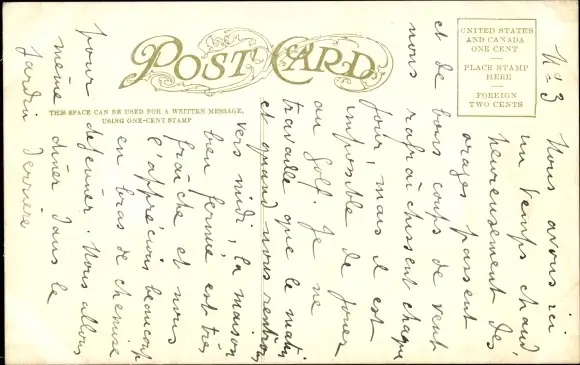 POST CARD
THIS SPACE CAN BE USED FOR A WRITTEN MESSAGE,
USING ONE-CENT STAMP
UNITED STATES
AND CANADA
ONE CENT
PLACE STAMP
HERE
FOREIGN
TWO CENTS
No 3 Nous avons ici
un temps chaud,
heureusement des
orages passent
et de bons coups de vent
nous rafraichissent chaque
jour, mais il est
impossible de jouer
au golf. Je ne
travaille que le matin
et quand nous rentrons
vers midi, la maison
bien fermée est très
fraîche et nous
l'apprécions beaucoup
en bras de chemise
pour déjeuner. Nous allons
même dîner dans le
jardin derrière